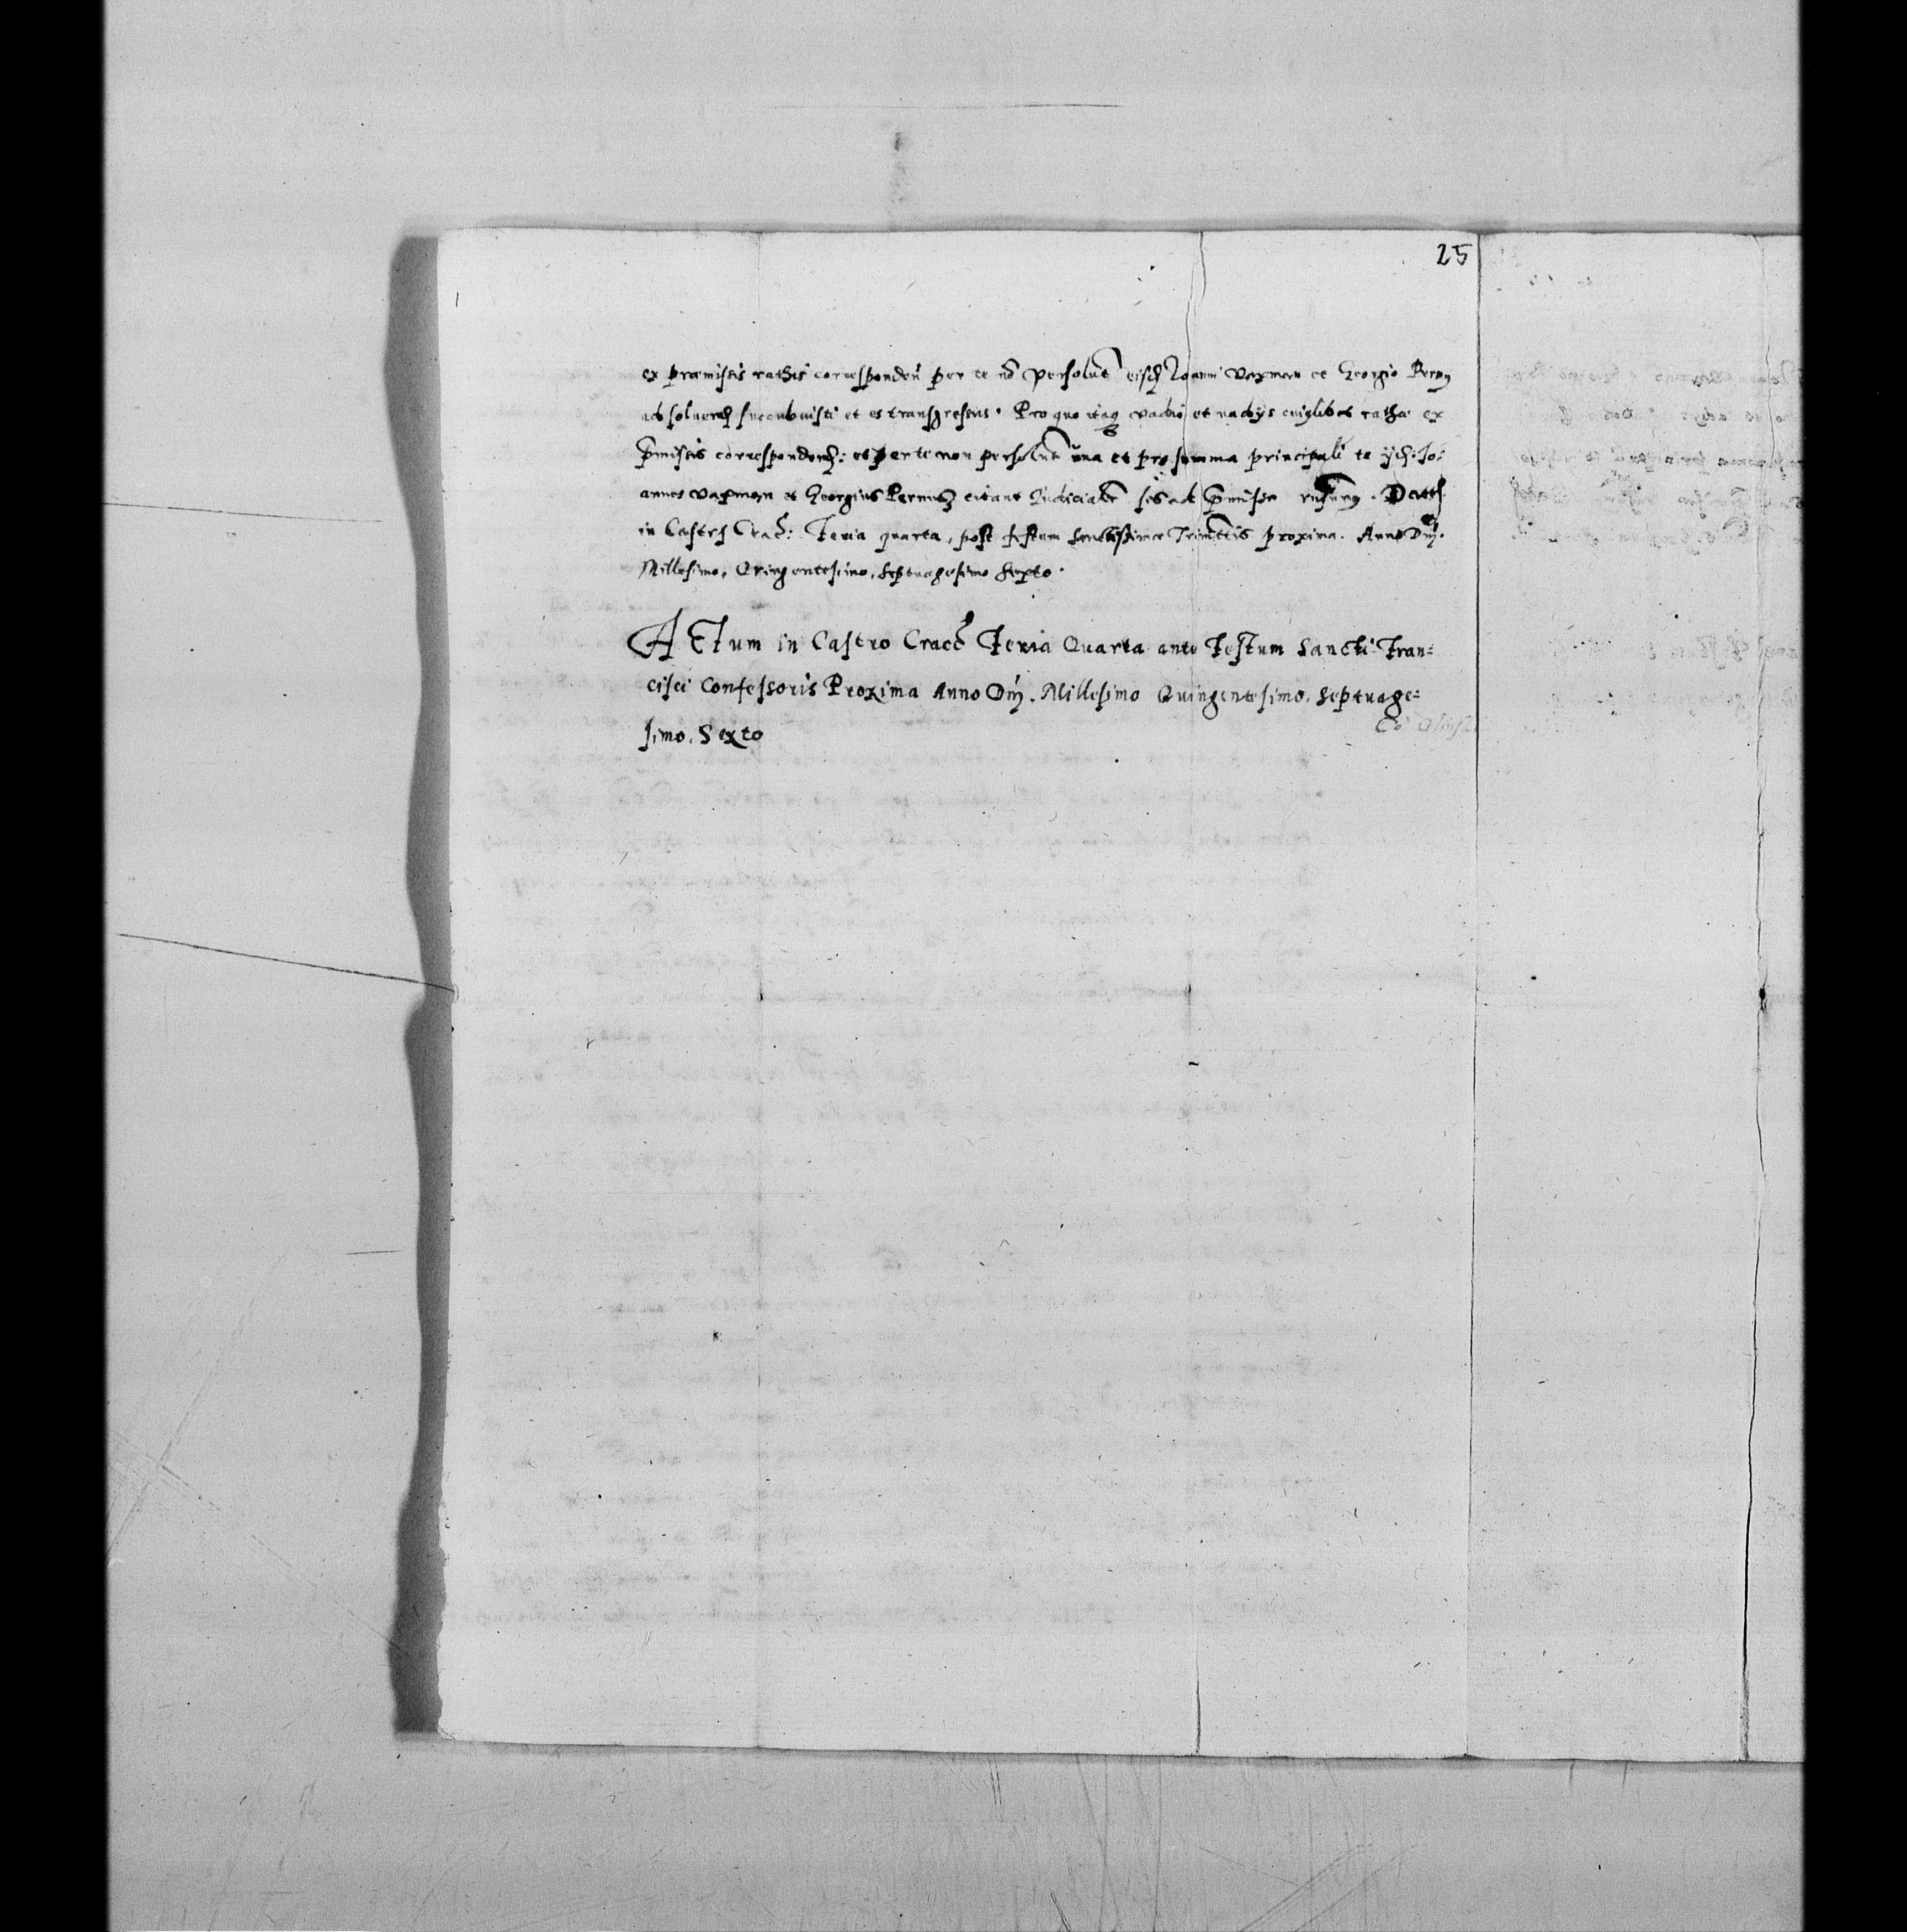 25
ex præmissis rathis corresponden̄ per te nō persolut̄ eisd Joanni Vaxman et Georgio Pernu
ad solvend succubuisti et es transgressus. Pro quo itaq vadio et vadÿs cuiuslibet rathæ ex
p̄missis correspondend: et per te non persolut̄ una et pro summa principali te ÿd: Jo:
annes Vaxman et Georgius Pernusz citant Judicialr̄ sis ad p̄missa rn̄surus. Datt
in Castro Crac: Feria quarta, post festum Sanctissimæ Trinitatis proxima. Anno Dnj.
Millesimo, Quingentesimo, Septuagesimo Sexto.
ACTum in Castro Cracō Feria Quarta ante Festum Sancti Fran=
cisci Confessoris Proxima Anno Dnj. Millesimo Quingentesimo, Septuage=
simo, Sexto